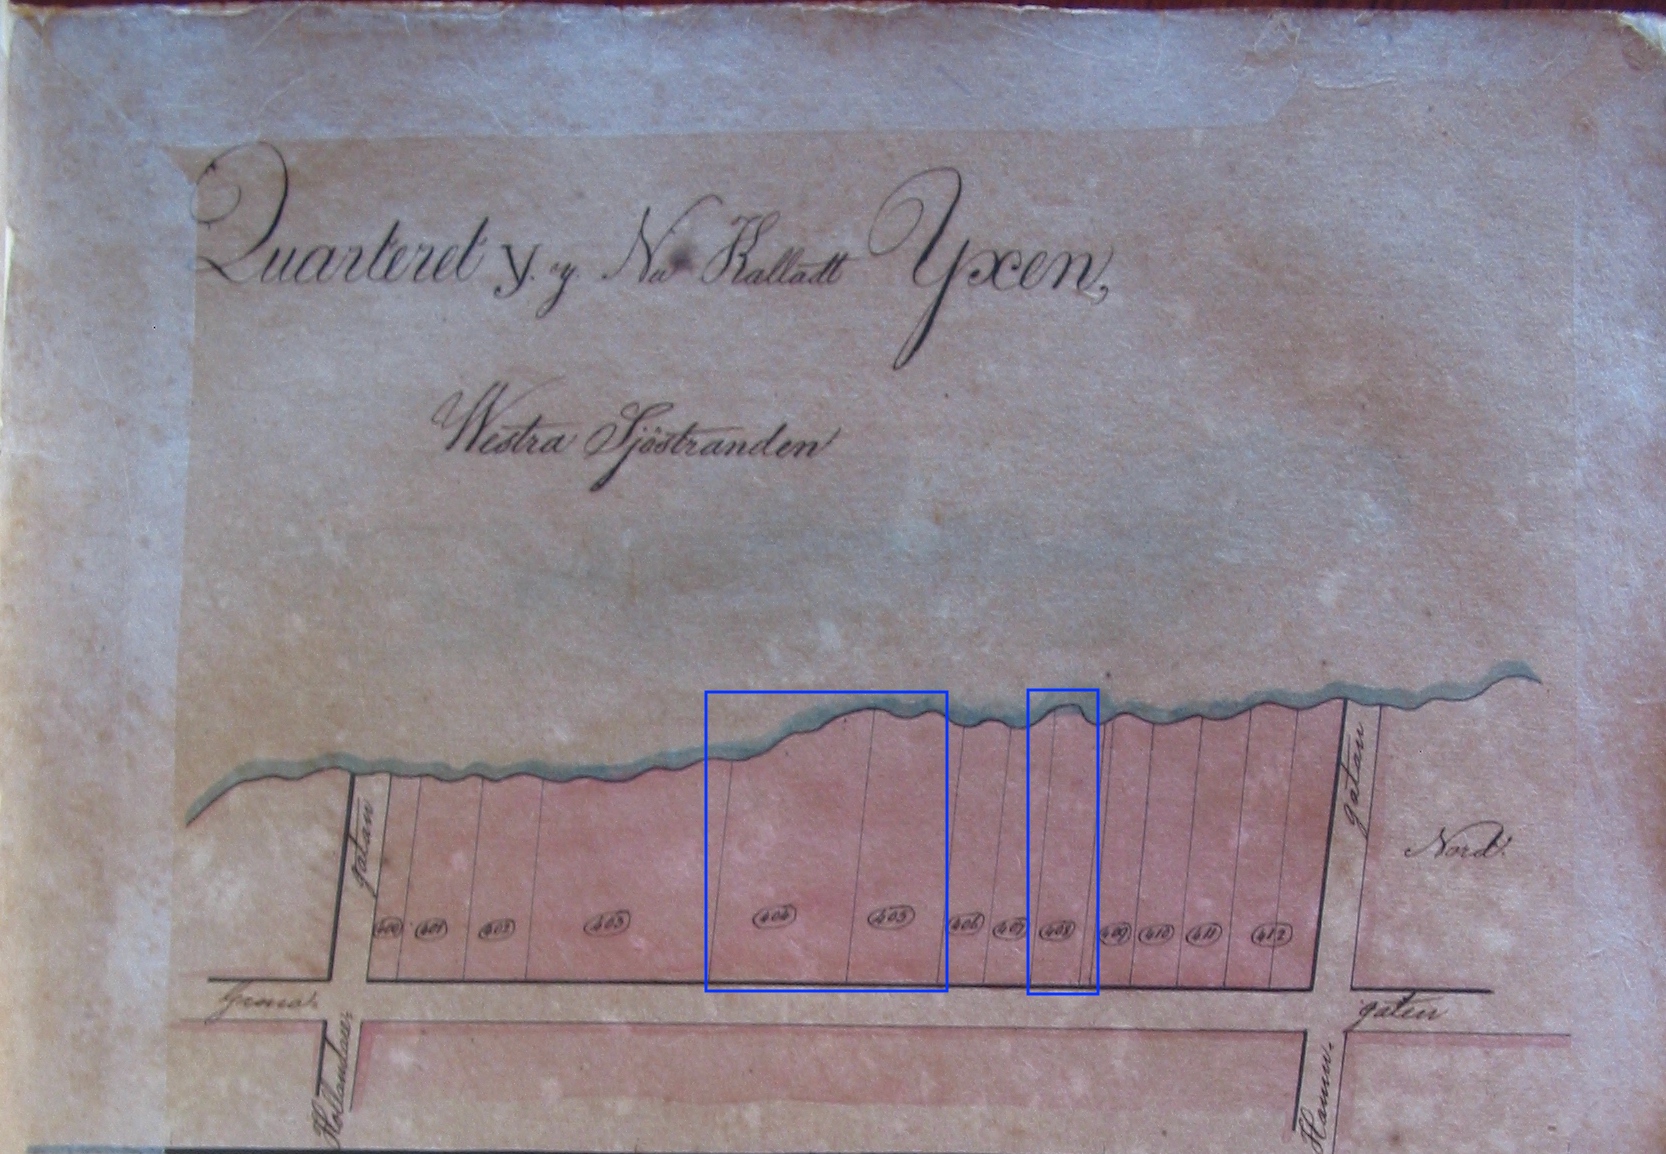 Quarteret y. y Nu Kalladt Yxen,
Westra Sjöstranden
gatan
gatan
Nord.
400 401 402 403 404 405 406 407 408 409 410 411 412
Hollandare
gatan
Hamn.